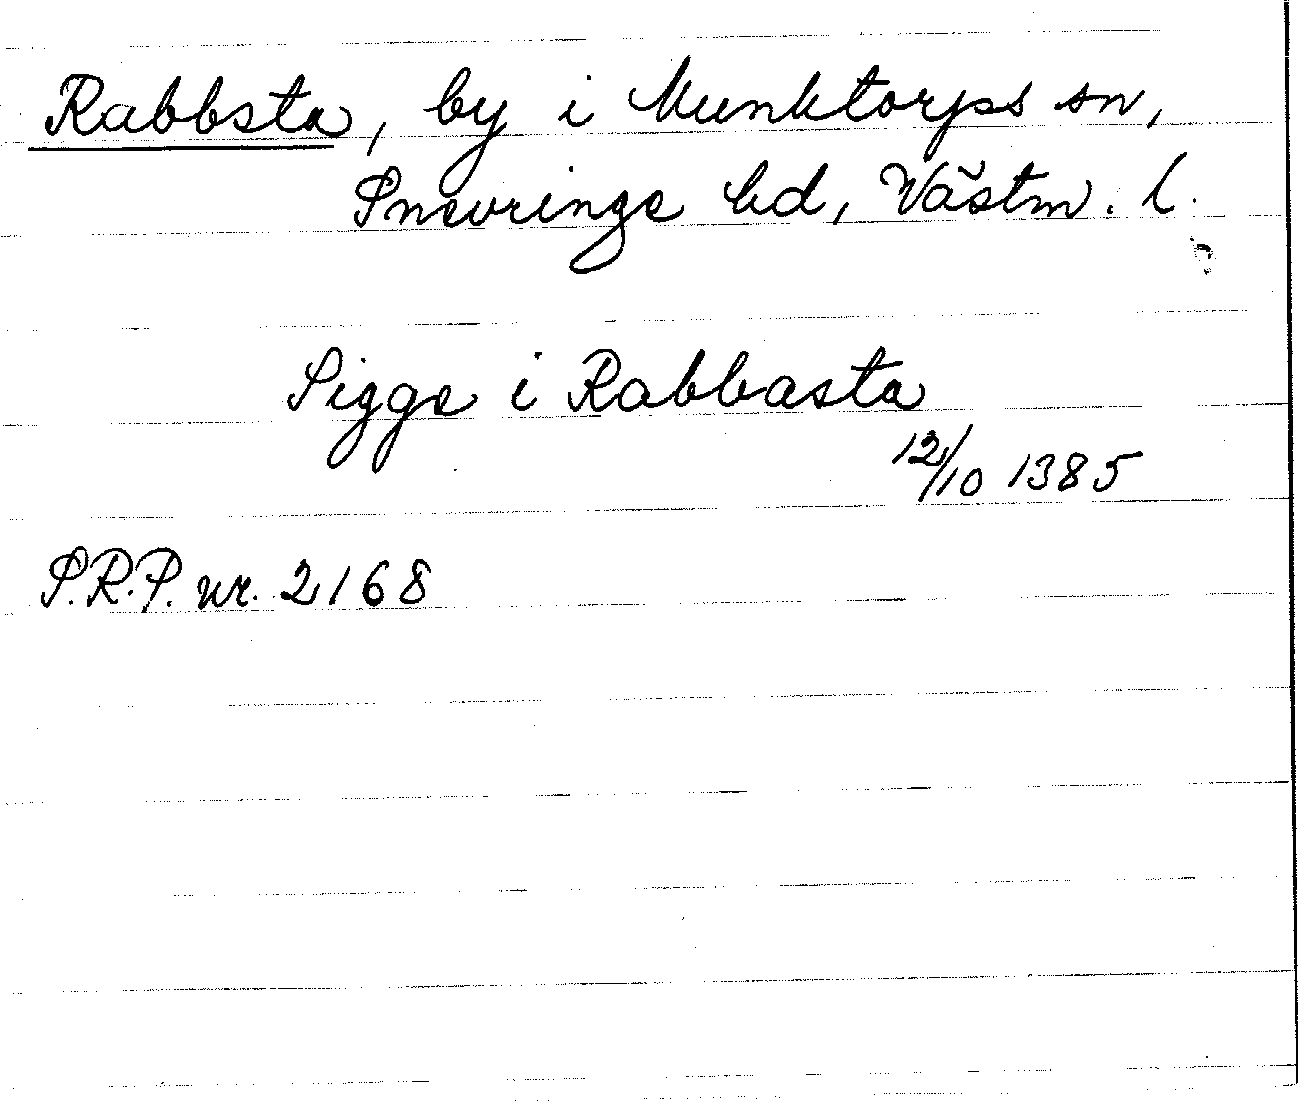 Rabbsta, by i Munktorps sn,
Snevringe hd, Västm. l.
Sigge i Rabbasta
12/10 1385
S.R.P. nr. 2168